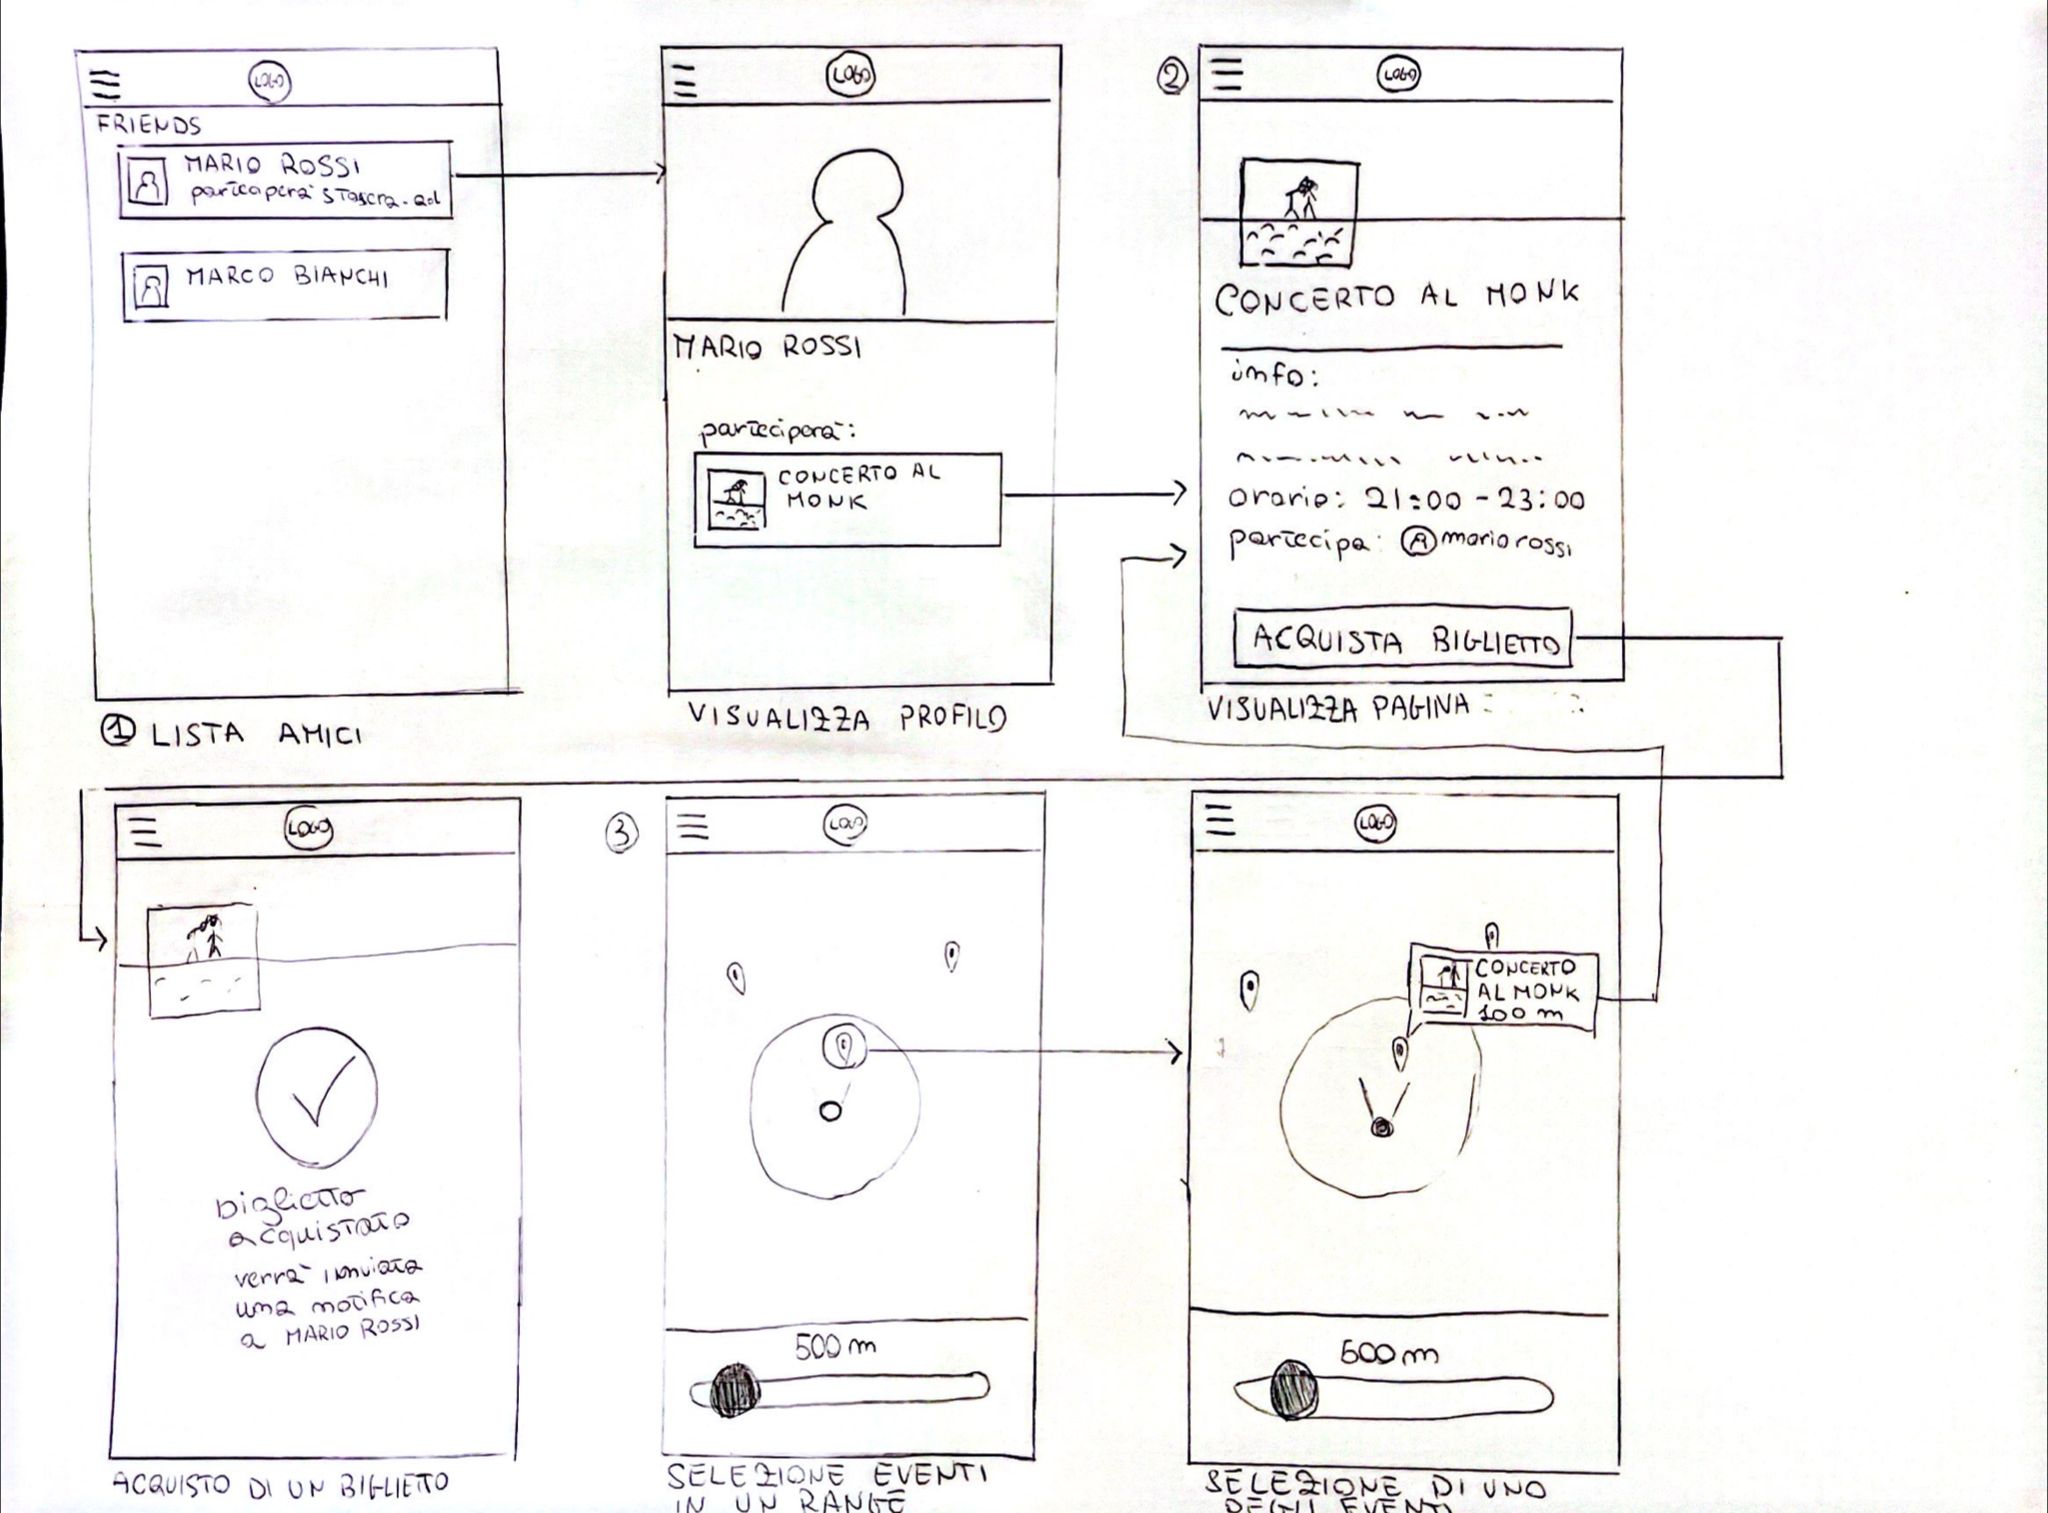 LOGO
FRIENDS
MARIO ROSSI
parteciperà stasera ad
MARCO BIANCHI
① LISTA AMICI
LOGO
MARIO ROSSI
parteciperà:
CONCERTO AL
MONK
VISUALIZZA PROFILO
②
LOGO
CONCERTO AL MONK
info:
orario: 21:00 - 23:00
partecipa: mario rossi
ACQUISTA BIGLIETTO
VISUALIZZA PAGINA
LOGO
biglietto
acquistato
verrà inviata
una notifica
a MARIO ROSSI
ACQUISTO DI UN BIGLIETTO
③
LOGO
500 m
SELEZIONE EVENTI
IN UN RANGE
LOGO
CONCERTO
AL MONK
100 m
500 m
SELEZIONE DI UNO
DEGLI EVENTI